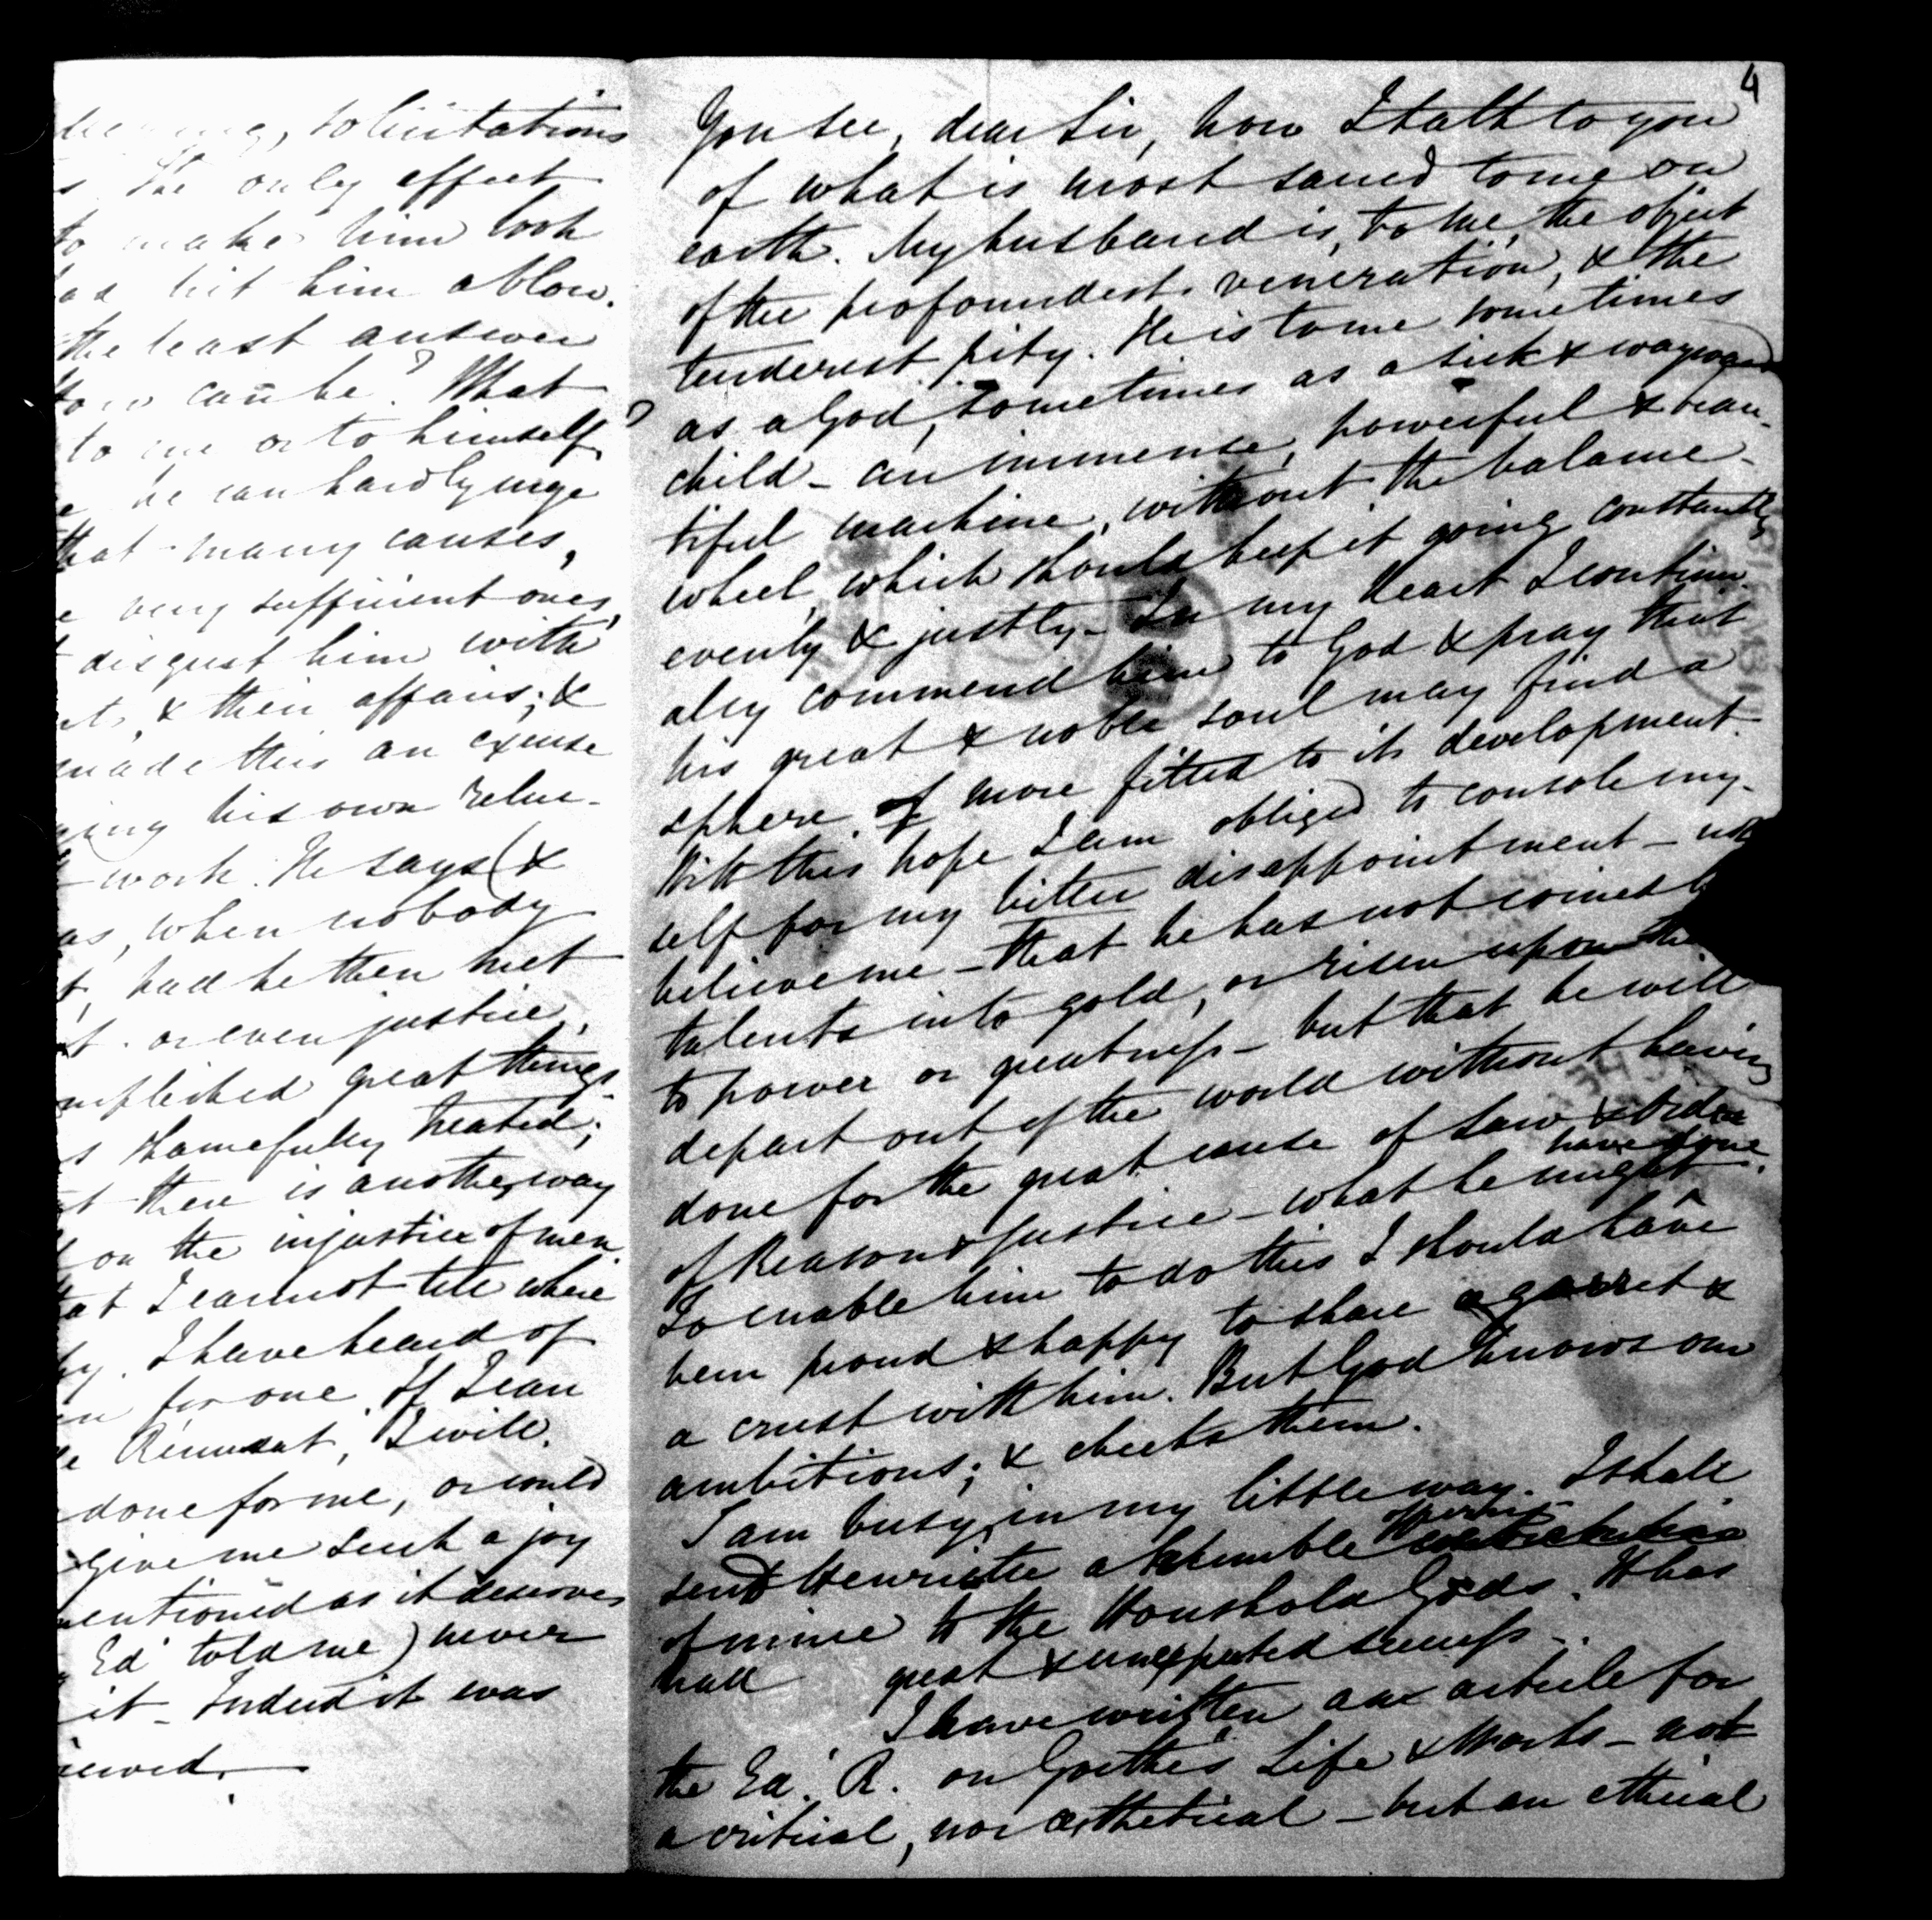 solicitations
the only effect
to make him look
as hit him a blow.
the least answer
How can he? What
to me or to himself?
he can hardly urge
that many causes,
very sufficient ones,
disgust him with
& their affairs; &
made this an excuse
his own reluc-
work. He says (&
as, when nobody
had he then met
or even justice,
great things.
shamefully treated;
there is another way
on the injustice of men
that I cannot tell where
I have heard of
for one. If I can
Rémusat, I will.
done for me, or would
give me such a joy
mentioned as it deserves
Ed. told me) never
it - Indeed it was
4
You see, dear Sir, how I talk to you
of what is most sacred to me on
earth. My husband is, to me, the object
of the profoundest veneration, & the
tenderest pity. He is to me sometimes
as a God, sometimes as a sick & wayward
child - an immense, powerful & beau-
tiful machine, without the balance-
wheel, which should keep it going constantly
evenly & justly - In my heart I continu
ally commend him to God & pray that
his great & noble soul may find a
sphere more fitted to its development.
With this hope I am obliged to console my-
self for my bitter disappointment - not
believe me - that he has not coined
talents into gold, or risen upon the
to power or greatness - but that he will
depart out of the world without having
done for the great cause of Law & Order
of Reason & Justice - what he might have done.
To enable him to do this I should have
been proud & happy to share a garret &
a crust with him. But God knows our
ambitions; & checks them.
I am busy, in my little way. I shall
send Henriette a humble offering
of mine to the Household Gods. It has
had great & unexpected success -
I have written an article for
the Ed. R. on Goethe's Life & Works - not
a critical, nor æsthetical - but an ethical